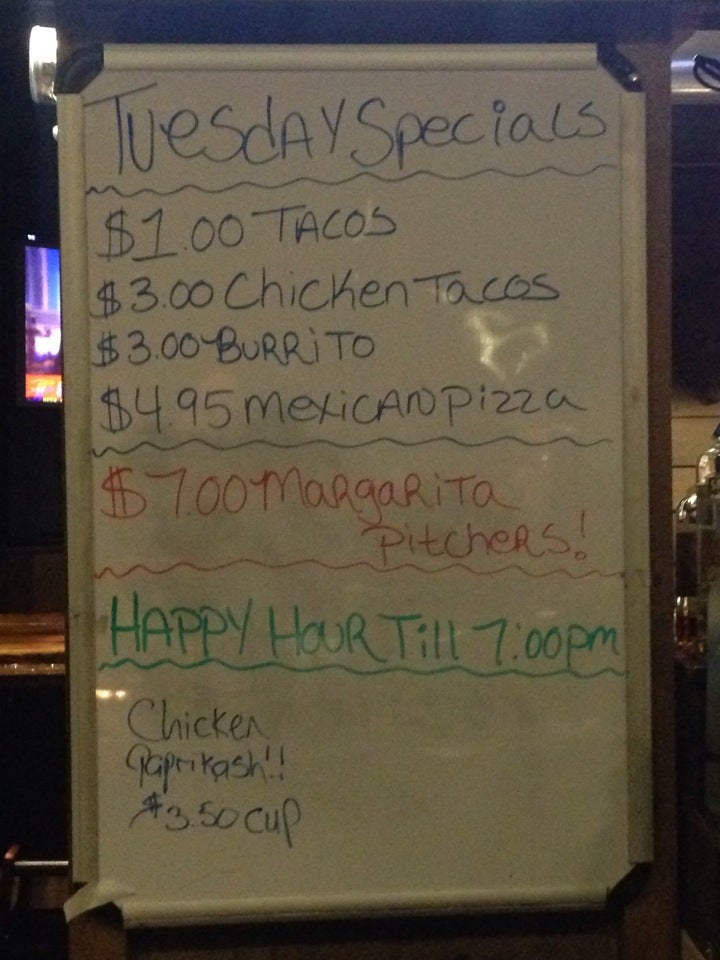 TuesdAy Specials
$1.00 TACOS
$3.00 Chicken Tacos
$3.00 BURRiTO
$4.95 mexiCAN pizza
$7.00 MaRgaRiTa
pitcheRs!
HAPPY HOUR Till 7:00pm
Chicken
Paprikash!!
$3.50 cup